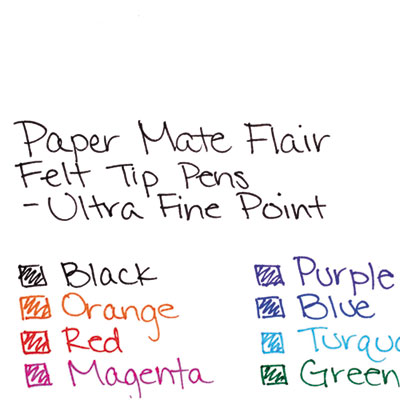 Paper Mate Flair
Felt Tip Pens
-Ultra Fine Point
Black
Orange
Red
Magenta
Purple
Blue
Turquo
Green